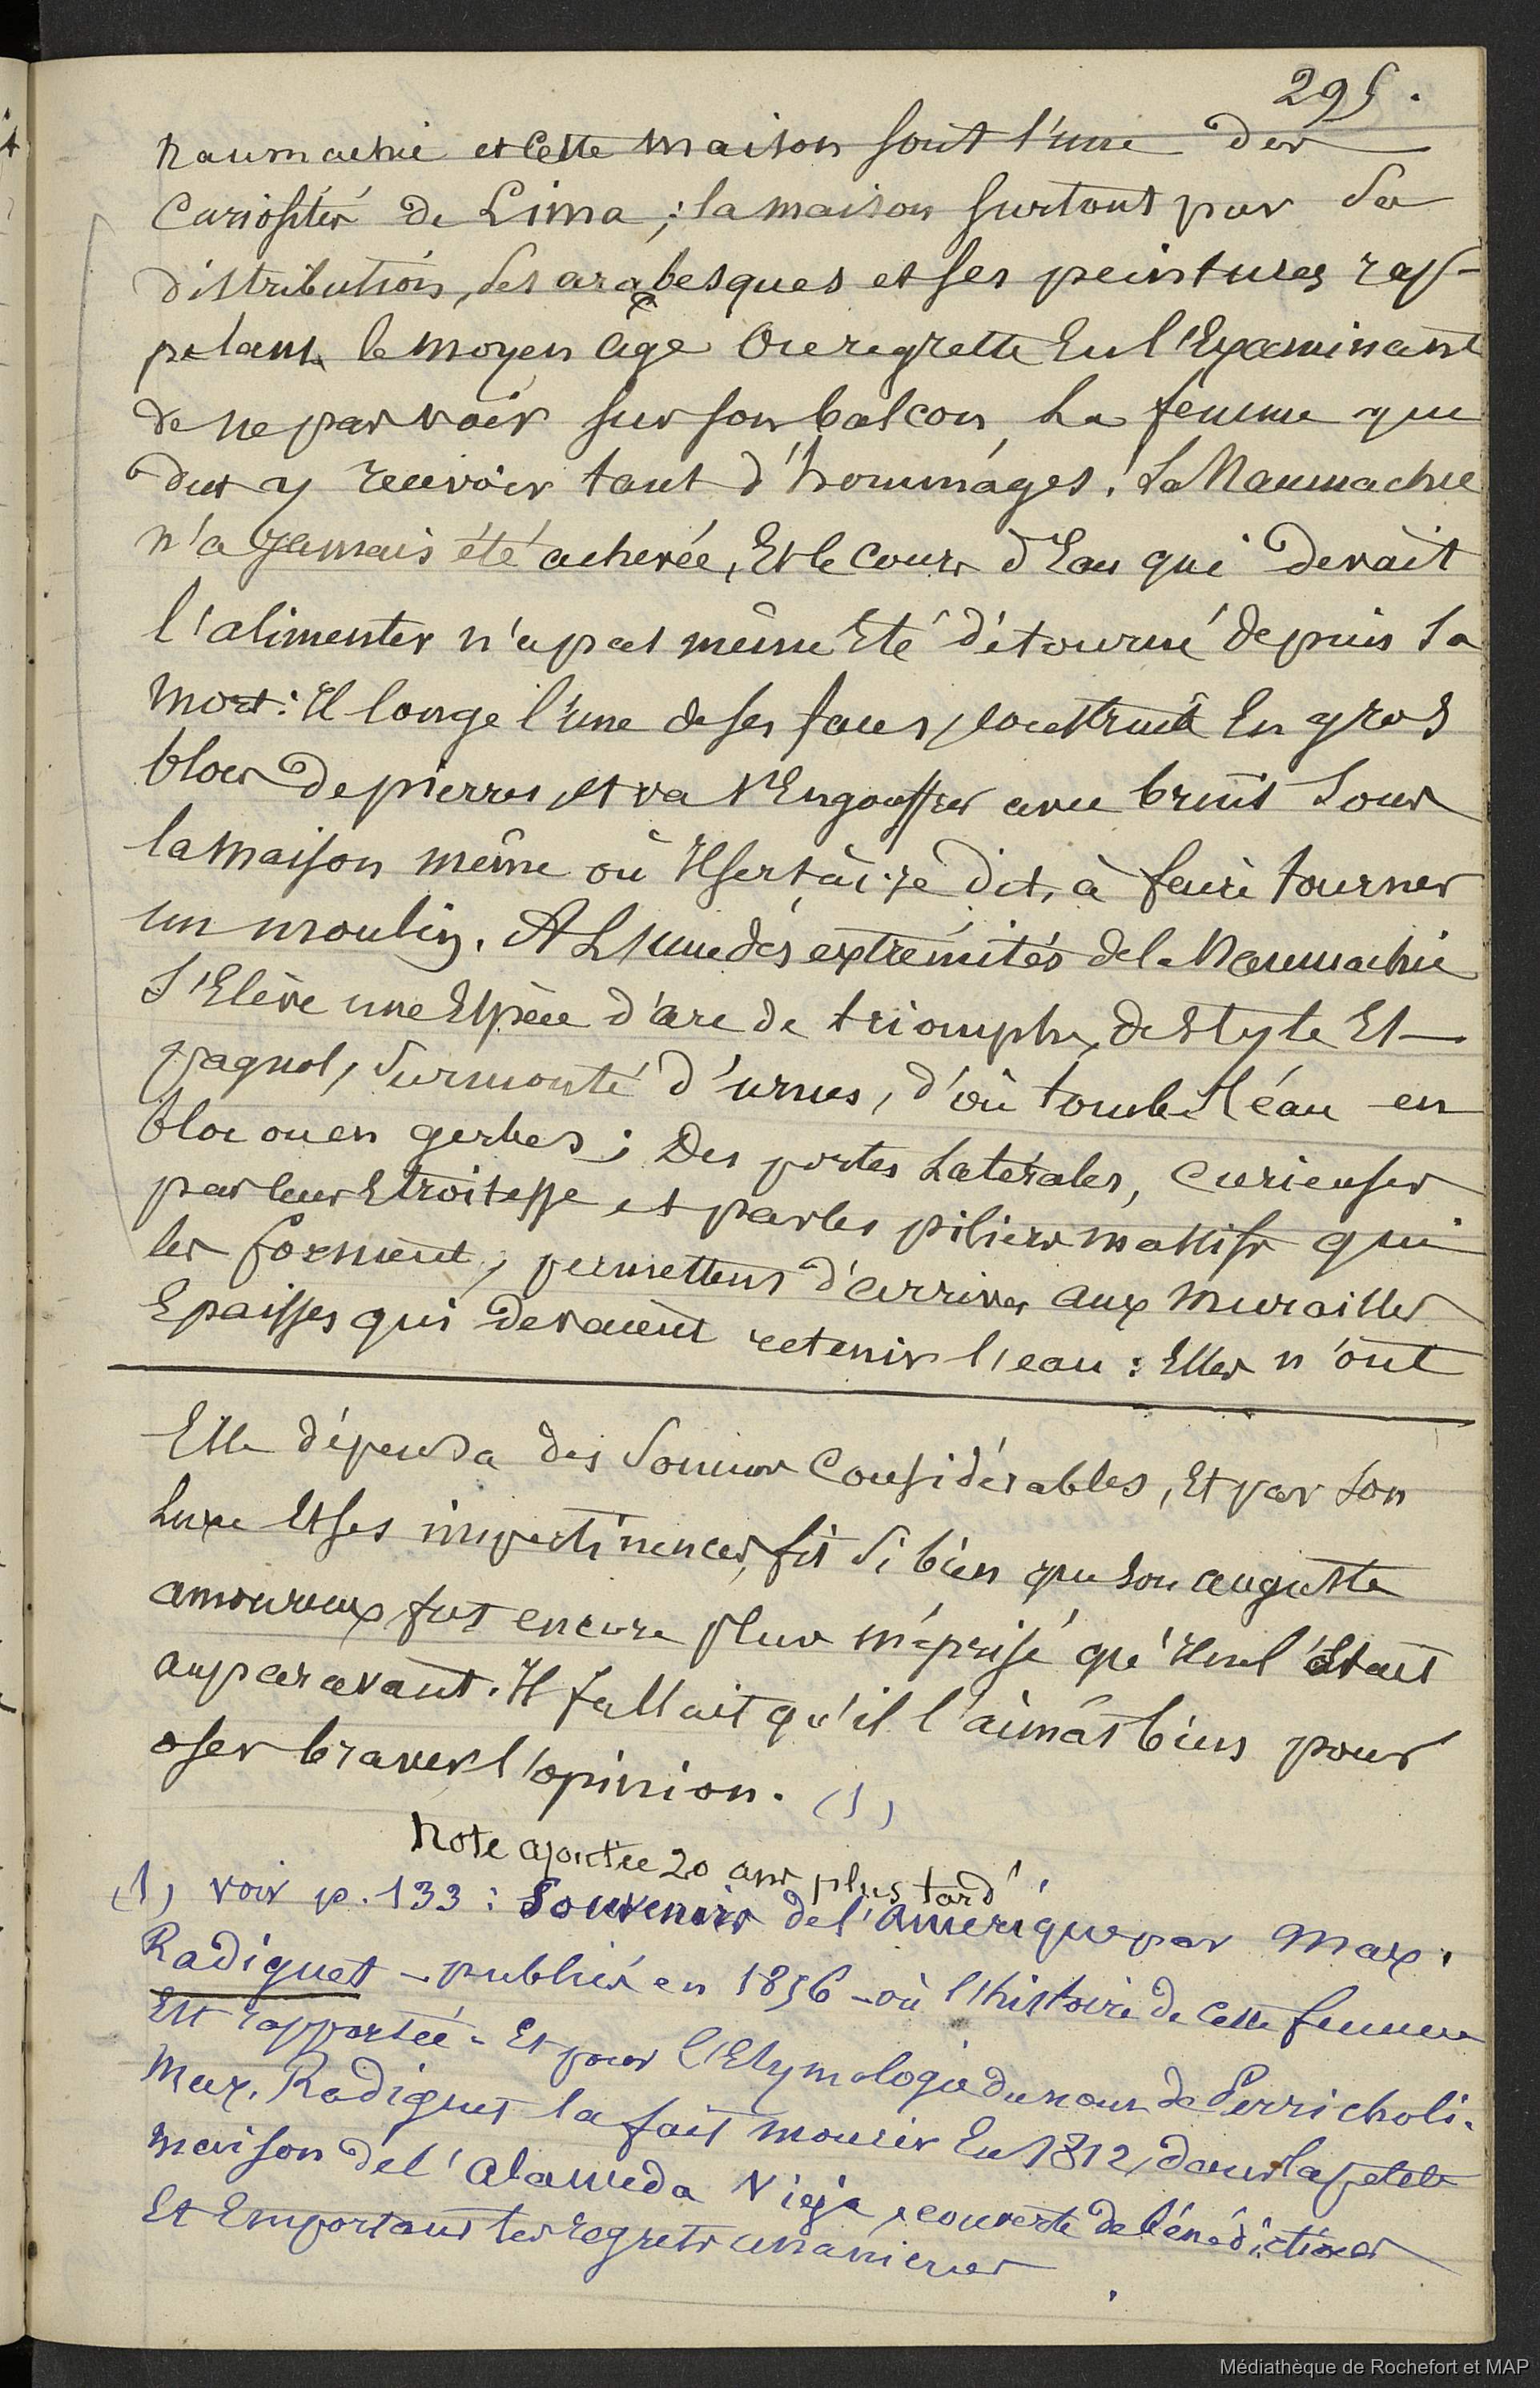 295.
Naumachie et cette maison sont l'une des
Curiosités de Lima ; la maison surtout par sa
distribution, ses arabesques et ses peintures rap-
pelant le moyen âge. On regrette En l'Examinant
de ne pas voir sur son balcon, La femme qui
dut y recevoir tant d'hommages. La Naumachie
n'a jamais été achevée, Et le Cours d'Eau qui devait
l'alimenter n'a pas même Eté détourné depuis sa
mort : Il longe l'une de ses faces, construite En gros
blocs de pierres, et va s'Engouffrer avec bruit sous
la maison même où Il sert, ai-je dit, à faire tourner
un moulin. A L'une des extrémités de la Naumachie
S'Elève une Espèce d'arc de triomphe, de style Es-
pagnol, surmonté d'urnes, d'où tombe l'eau en
bloc ou en gerbes ; Des portes Latérales, curieuses
par leur Etroitesse et par les piliers massifs qui
les forment, permettent d'arriver aux murailles
Epaisses qui devaient retenir l'eau : Elles n'ont
Elle dépensa des sommes Considérables, Et par son
Luxe Et ses impertinences, fit si bien que son auguste
amoureux fut encore plus méprisé qu'Il ne l'était
auparavant. Il fallait qu'il l'aimât bien pour
oser braver l'opinion. (1)
Note ajoutée 20 ans plus tard
(1) voir p. 133 : Souvenirs de l'Amérique par Max.
Radiguet - publiés en 1856 - où l'histoire de Cette femme
Est rapportée - Et pour l'Etymologie du nom de Perricholi.
Max. Radiguet la fait mourir En 1812, dans la petite
maison de l'Alameda Vieja, couverte de bénédictions
Et Emportant les regrets unanimes.
Médiathèque de Rochefort et MAP